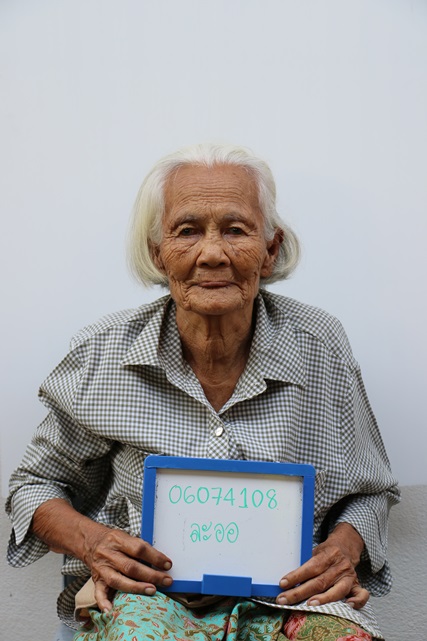 06074108
ละออ